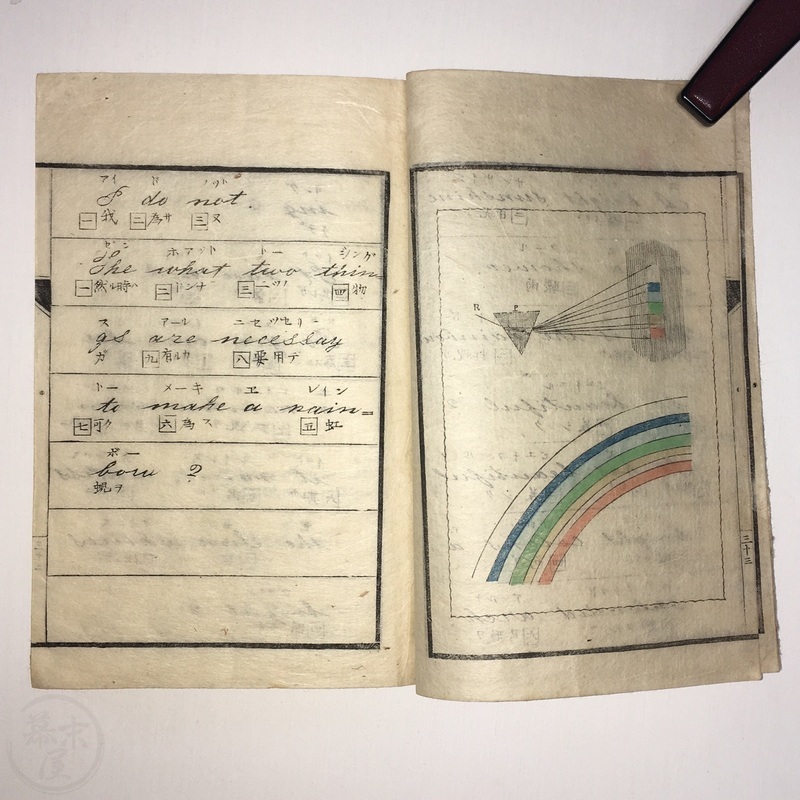 アイ ド ノット
I do not.
一 我 二 為サ 三 ヌ
ゼン ホアット トー シング
The what two thin
一 然ル時ハ 二 ドンナ 三 二ツノ 四 物
ス アール ニセッセリー
gs are necessay
ガ 九 有ルカ 八 要用デ
トー メーキ エ レイン
to make a rain=
七 可ク 六 為ス 五 虹
ボー
bow ?
蜺ヲ
R
三十三
幕末屋